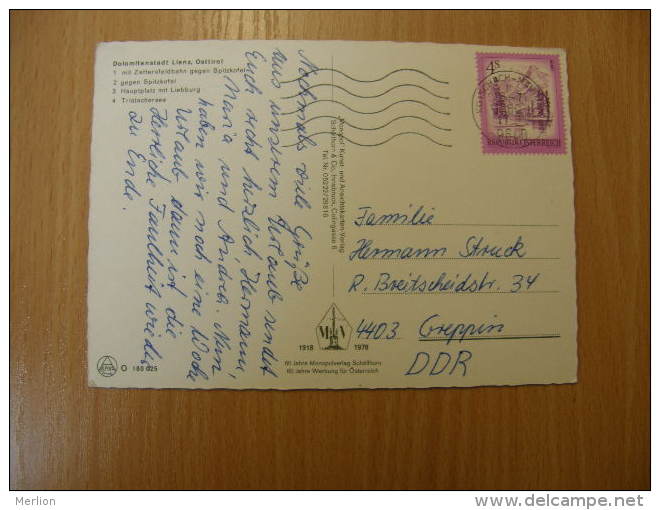 Dolomitenstadt Lienz, Osttirol
1 mit Zettersfeldbahn gegen Spitzkofel
2 gegen Spitzkofel
3 Hauptplatz mit Liebburg
4 Tristachersee
Nochmals viele Grüße
aus unserem Urlaub sendet
Euch recht herzlich Hermann,
Maria und Andrea. Nun
haben wir noch eine Woche
Urlaub dann ist die
Herrliche Faulheit wieder
zu Ende.
Monopol Kunst- und Ansichtskarten-Verlag
Schöllhorn & Co., Innsbruck,
Tel. Nr.
4S
REPUBLIK ÖSTERREICH
Familie
Hermann Struck
R. Breitscheidstr. 34
4403 Greppin
DDR
1918 1978
60 Jahre Monopolverlag Schöllhorn
60 Jahre Werbung für Österreich
O 180 025
Merlion
delcampe.net